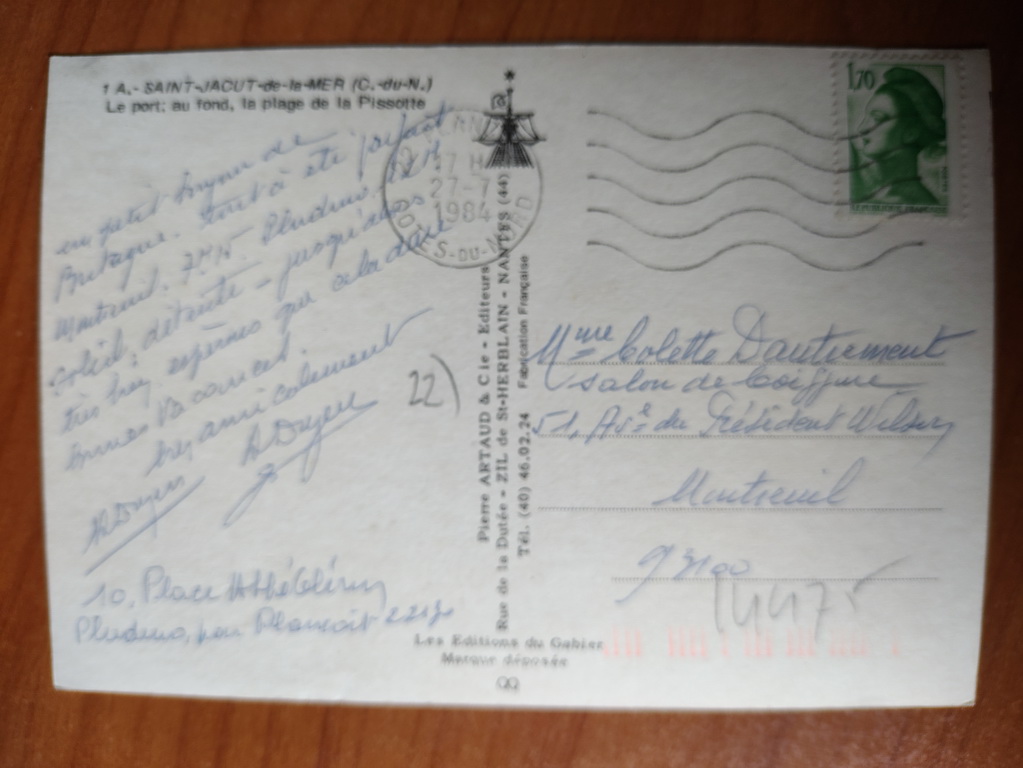 1 A.- SAINT-JACUT-de-la-MER (C.-du-N.)
Le port; au fond, la plage de la Pissotte
un petit bonjour de
Bretagne. Tout a été parfait
Montreuil. Pluduno. Le
soleil, détente - jusqu'à
très bien espérons que cela dure
bonnes vacances.
bien amicalement
10, Place Abbé Clérin
Pluduno, par Plancoët
22)
17 H
27-7
1984
COTES-DU-NORD
Pierre ARTAUD & Cie - Editeurs
Rue de la Dutée - ZIL de St-HERBLAIN - NANTES (44)
Tél. (40) 46.02.24 Fabrication Française
Les Editions du Gabier
Marque déposée
1,70
Mme Colette Dautrement
salon de Coiffure
51, Av. du Président Wilson
Montreuil
93100
14475